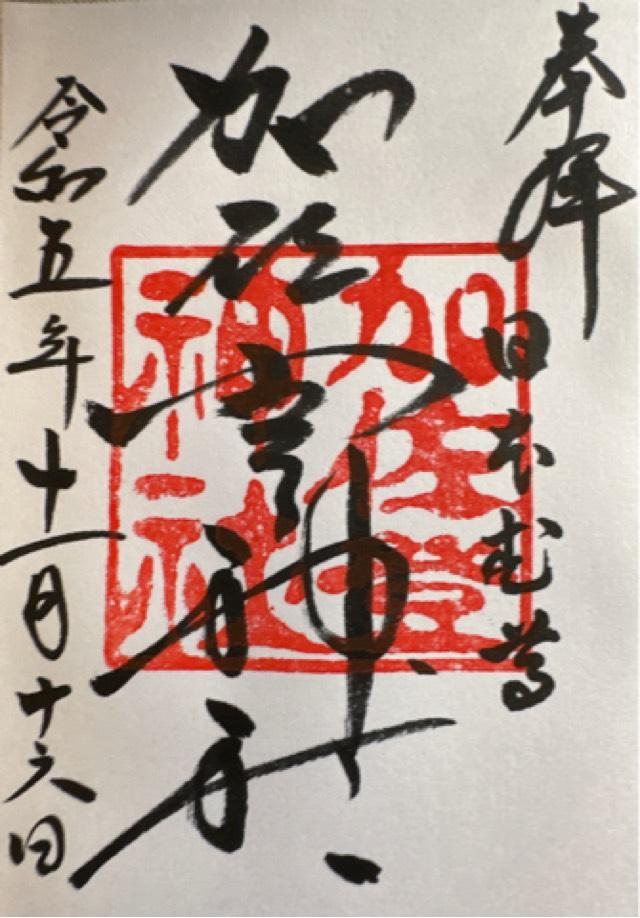 奉拝
日本武尊
加佐登神社
加佐登
神社
令和五年十一月十六日